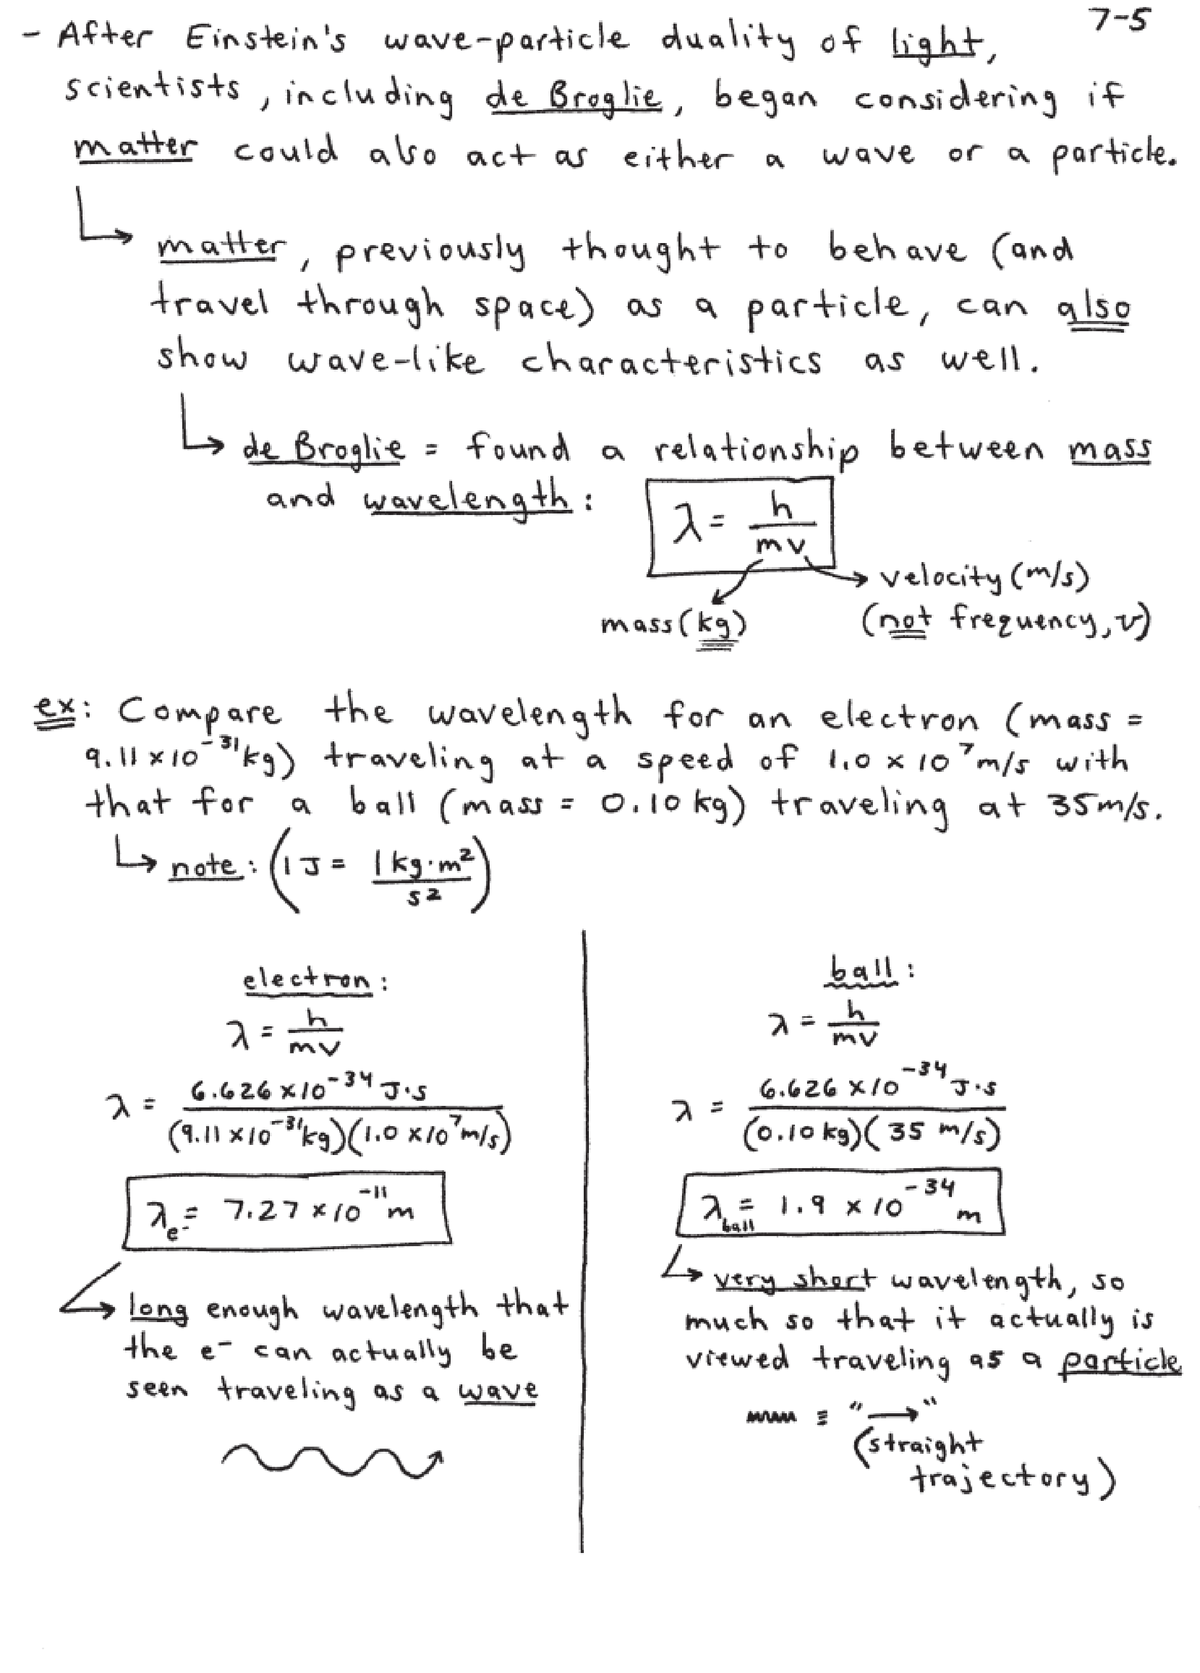 7-5
- After Einstein's wave-particle duality of light,
scientists, including de Broglie, began considering if
matter could also act as either a wave or a particle.
↳ matter, previously thought to behave (and
travel through space) as a particle, can also
show wave-like characteristics as well.
↳ de Broglie = found a relationship between mass
and wavelength: λ = h/mv
→ velocity (m/s)
mass (kg) (not frequency, ν)
ex: Compare the wavelength for an electron (mass =
9.11 × 10⁻³¹ kg) traveling at a speed of 1.0 × 10⁷ m/s with
that for a ball (mass = 0.10 kg) traveling at 35 m/s.
↳ note: (1 J = 1 kg·m²/s²)
electron:
λ = h/mv
λ = 6.626 × 10⁻³⁴ J·s / (9.11 × 10⁻³¹ kg)(1.0 × 10⁷ m/s)
λe⁻ = 7.27 × 10⁻¹¹ m
↳ long enough wavelength that
the e⁻ can actually be
seen traveling as a wave
ball:
λ = h/mv
λ = 6.626 × 10⁻³⁴ J·s / (0.10 kg)(35 m/s)
λball = 1.9 × 10⁻³⁴ m
↳ very short wavelength, so
much so that it actually is
viewed traveling as a particle
≡ "→"
(straight
trajectory)